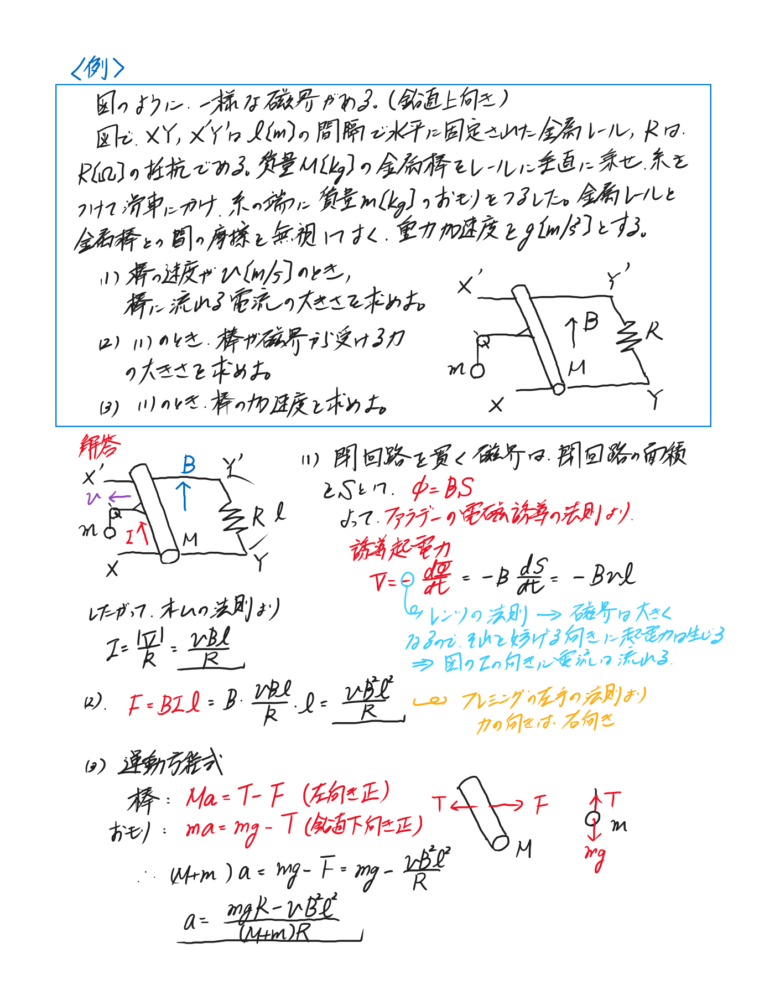 〈例〉
図のように、一様な磁界がある。(鉛直上向き)
図で、XY, X'Y'は l(m)の間隔で水平に固定された金属レール, Rは
R[Ω]の抵抗である。質量M[kg]の金属棒をレールに垂直に乗せ、糸を
つけて滑車にかけ、糸の端に質量m[kg]のおもりをつるした。金属レールと
金属棒との間の摩擦を無視してよく、重力加速度をg[m/s²]とする。
(1) 棒の速度がv[m/s]のとき,
棒に流れる電流の大きさを求めよ。
(2) (1)のとき、棒が磁界から受ける力
の大きさを求めよ。
(3) (1)のとき、棒の加速度を求めよ。
X' Y'
B
R
m
M
X Y
解答
X' B Y'
v
m I R l
M
X Y
(1) 閉回路を貫く磁界は、閉回路の面積
をSとして、 φ=BS
よって、ファラデーの電磁誘導の法則より、
誘導起電力
V=-dΦ/dt = -B dS/dt = -Bvl
レンツの法則 → 磁界は大きく
なるので、それを妨げる向きに起電力は生じる
⇒ 図のIの向きに電流は流れる。
したがって、オームの法則より
I=|V|/R = vBl/R
(2). F=BIl = B・vBl/R・l = vB²l²/R
フレミングの左手の法則より
力の向きは、右向き
(3) 運動方程式
棒: Ma=T-F (左向き正)
おもり: ma=mg-T (鉛直下向き正)
∴ (M+m)a=mg-F=mg-vB²l²/R
a=mgR-vB²l²/(M+m)R
T F
M
T
m
mg